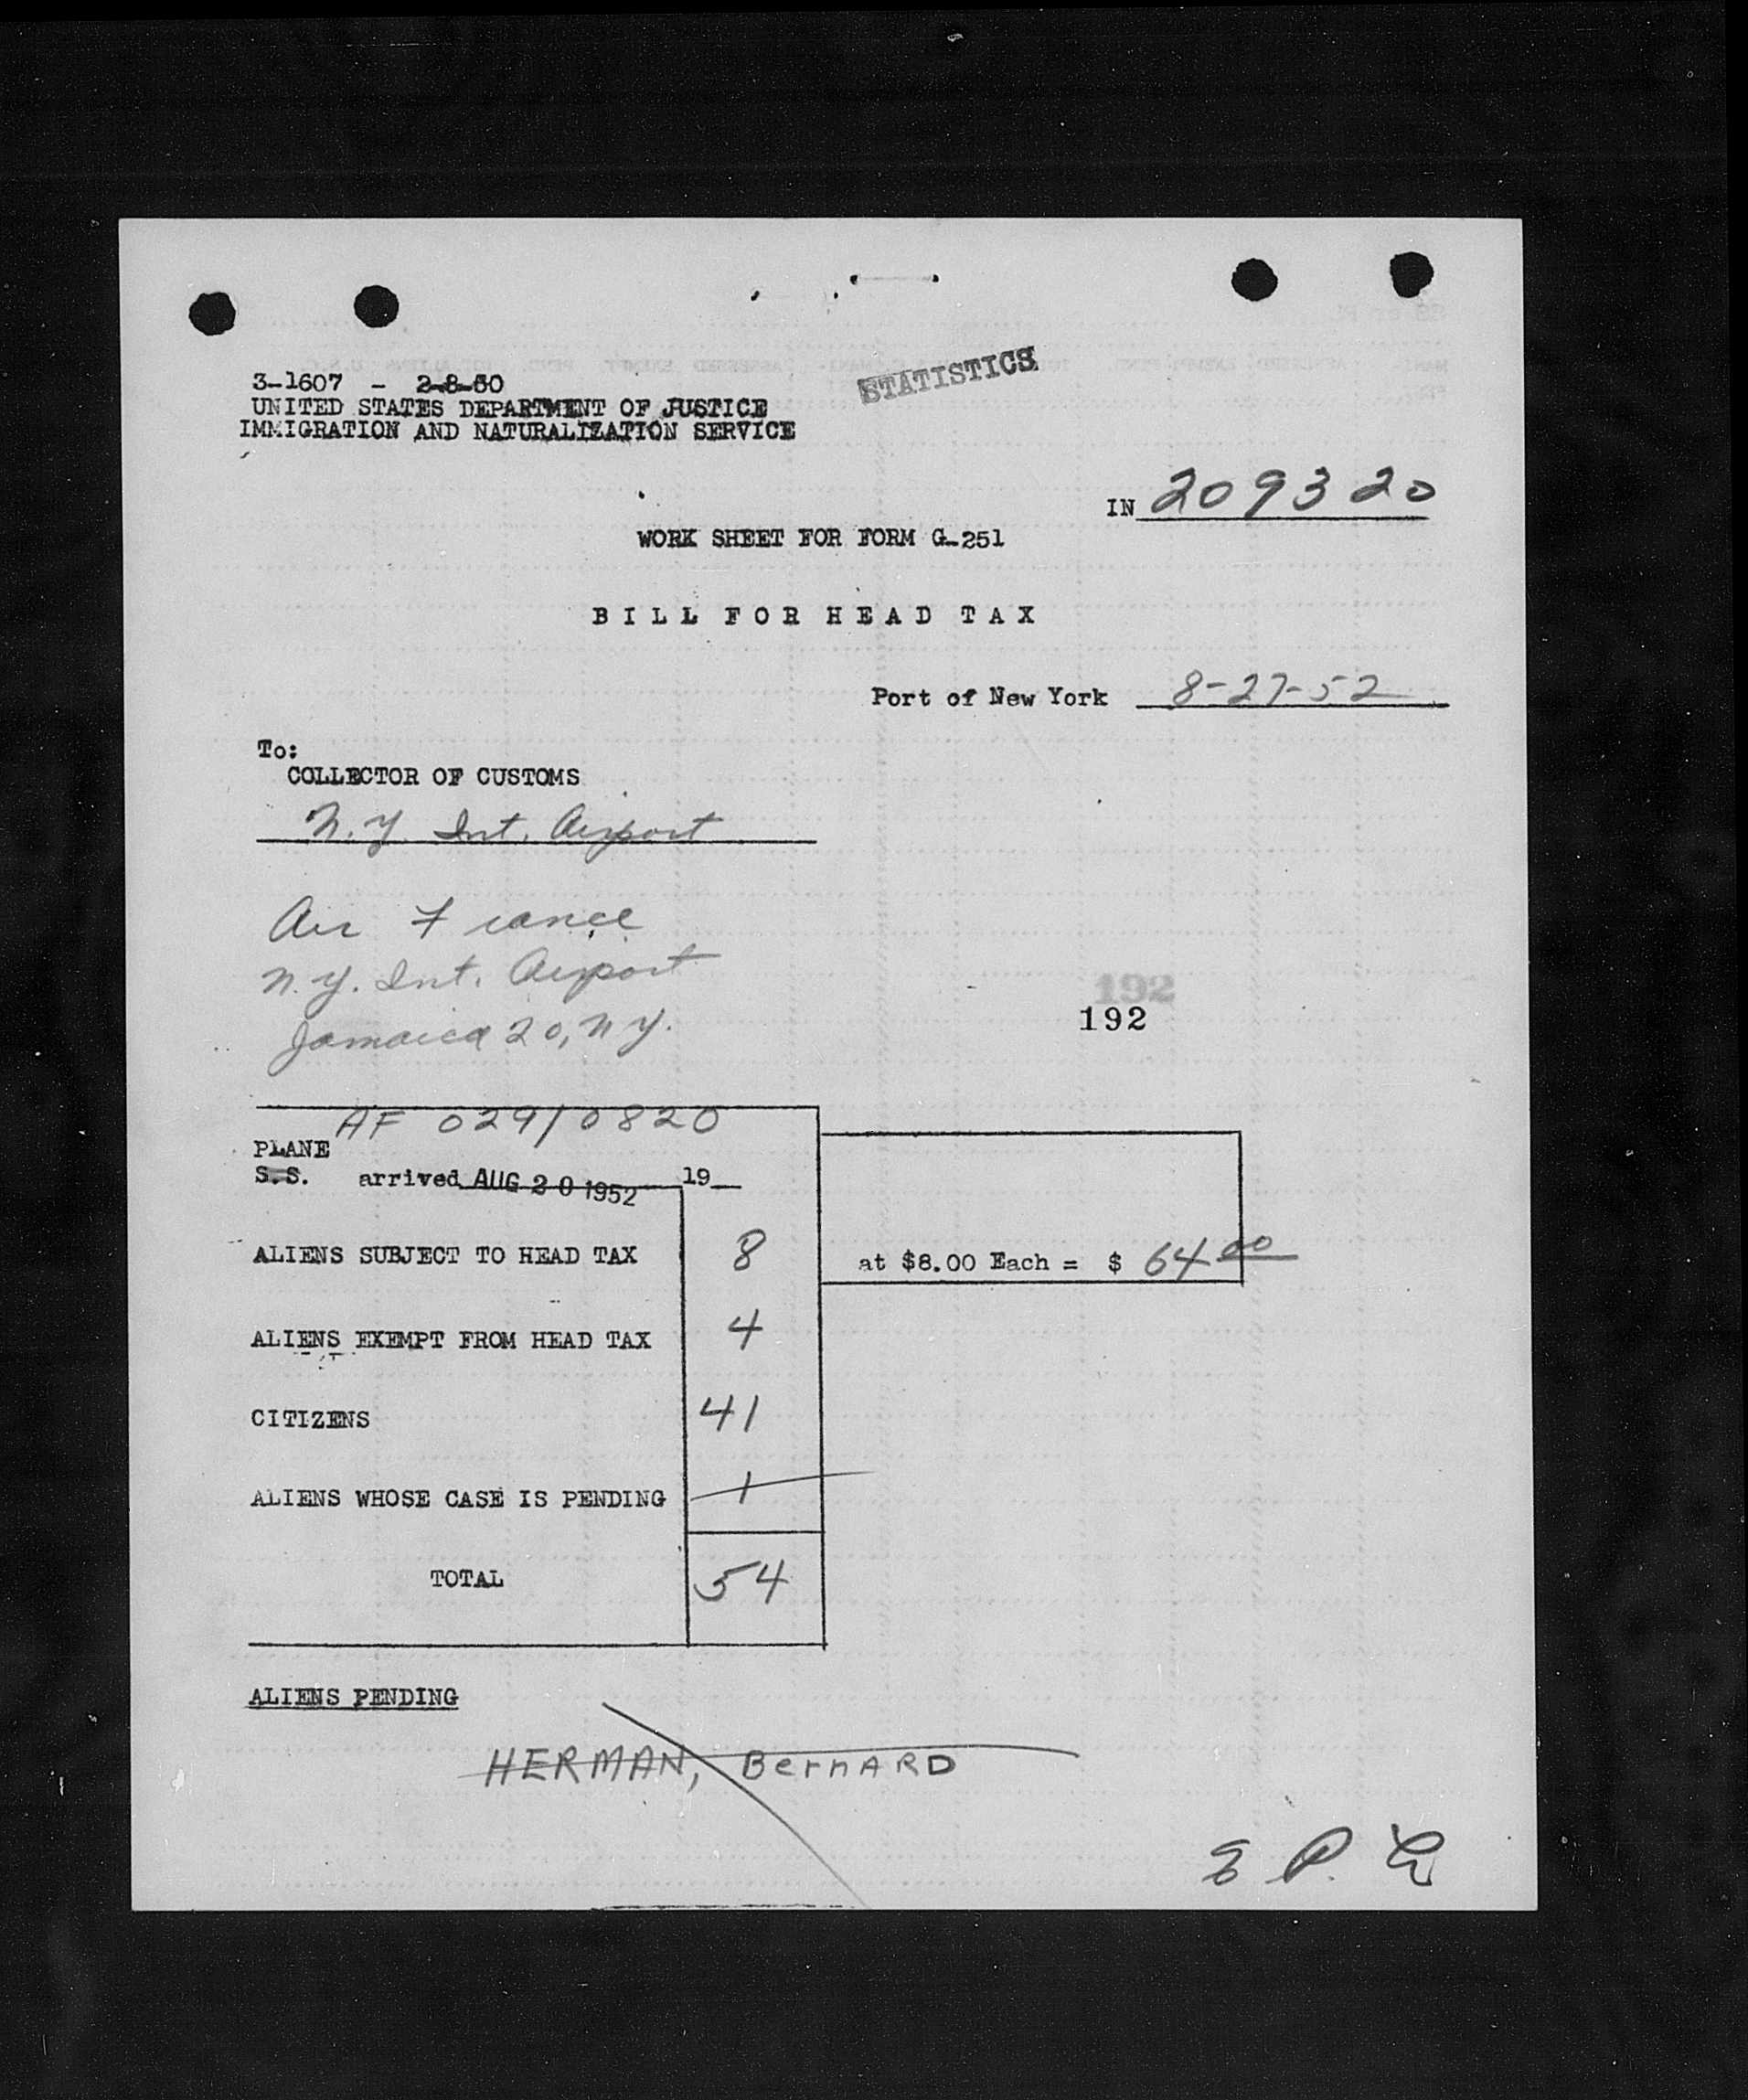 STATISTICS
3-1607 - 2-8-50
UNITED STATES DEPARTMENT OF JUSTICE
IMMIGRATION AND NATURALIZATION SERVICE
IN 209320
WORK SHEET FOR FORM G-251
BILL FOR HEAD TAX
Port of New York 8-27-52
To:
COLLECTOR OF CUSTOMS
N.Y. Int. Airport
Air France
N.Y. Int. Airport
192
192
Jamaica 20, N.Y.
AF 029/0820
PLANE
S.S. arrived AUG 20 1952 19
ALIENS SUBJECT TO HEAD TAX 8 at $8.00 Each = $ 64 00
ALIENS EXEMPT FROM HEAD TAX 4
CITIZENS 41
ALIENS WHOSE CASE IS PENDING 1
TOTAL 54
ALIENS PENDING
HERMAN, BernARD